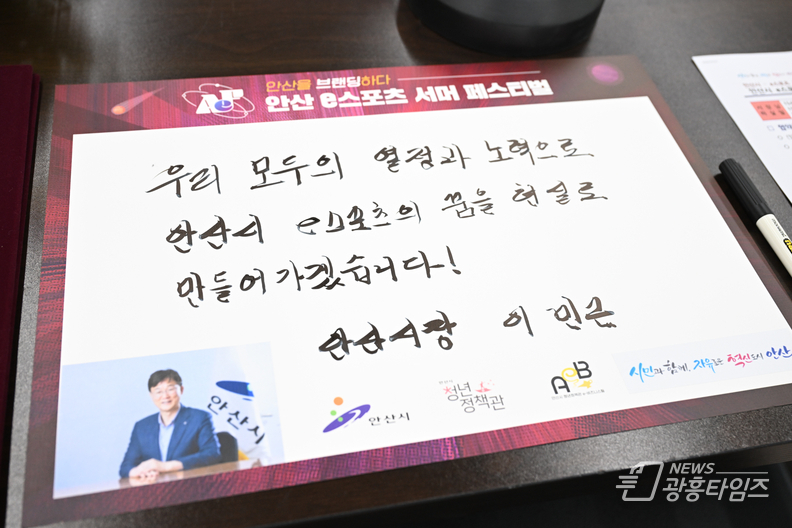 안산을 브랜딩하다
안산 e스포츠 서머 페스티벌
우리 모두의 열정과 노력으로
안산시 e스포츠의 꿈을 현실로
만들어가겠습니다!
안산시장 이민근
안산시
안산시
청년
정책관
AB
시민과 함께, 자유로운 혁신도시 안산
NEWS
광흥타임즈